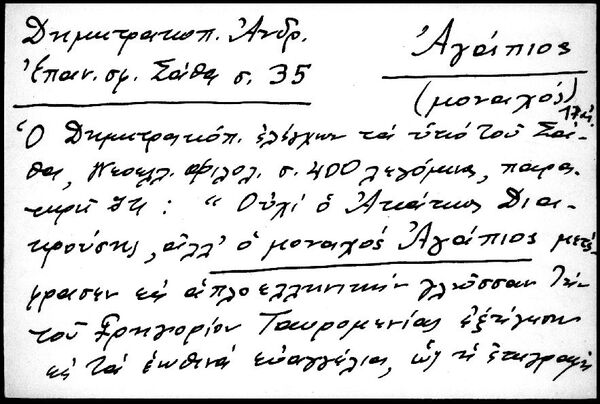 Δημητρακοπ. Ἀνδρ.
Ἐπαν. σφ. Σάθα σ. 35
Ἀγάπιος
(μοναχός)
17 αἰ.
Ὁ Δημητρακόπ. ἐλέγχων τὰ ὑπὸ τοῦ Σά-
θα, Νεοελλ. Φιλολ. σ. 400 λεγόμενα, παρα-
τηρεῖ ὅτι : “ Οὐχὶ ὁ Ἀκάκιος Δια-
κρούσης, ἀλλ' ὁ μοναχός Ἀγάπιος μετέ-
φρασεν εἰς ἁπλοελληνικήν γλῶσσαν τήν
τοῦ Γρηγορίου Ταυρομενίας ἐξήγησιν
εἰς τὰ ἑωθινά εὐαγγέλια, ὡς ἡ ἐπιγραφή